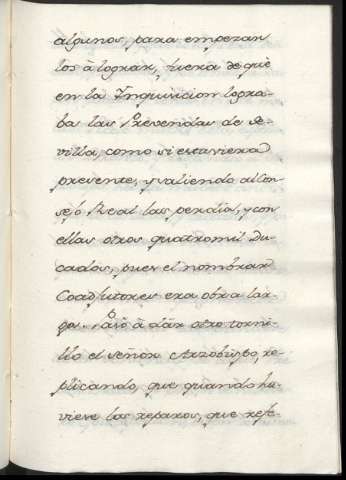 algunos, para empezar
los à lograr, fuera de què
en la Inquisicion logra-
ba las Prevendas de Se-
villa, como si estuviera
presente, y saliendo al Con
sejo Real las perdia, y con
ellas otros quatromil Du-
cados, pues el nombrar
Coadjutores era obra lar-
ga. Pasò à dàr otro torni-
llo el señor Arzobispo, re-
plicando, que quando hu-
viese los reparos, que refe-